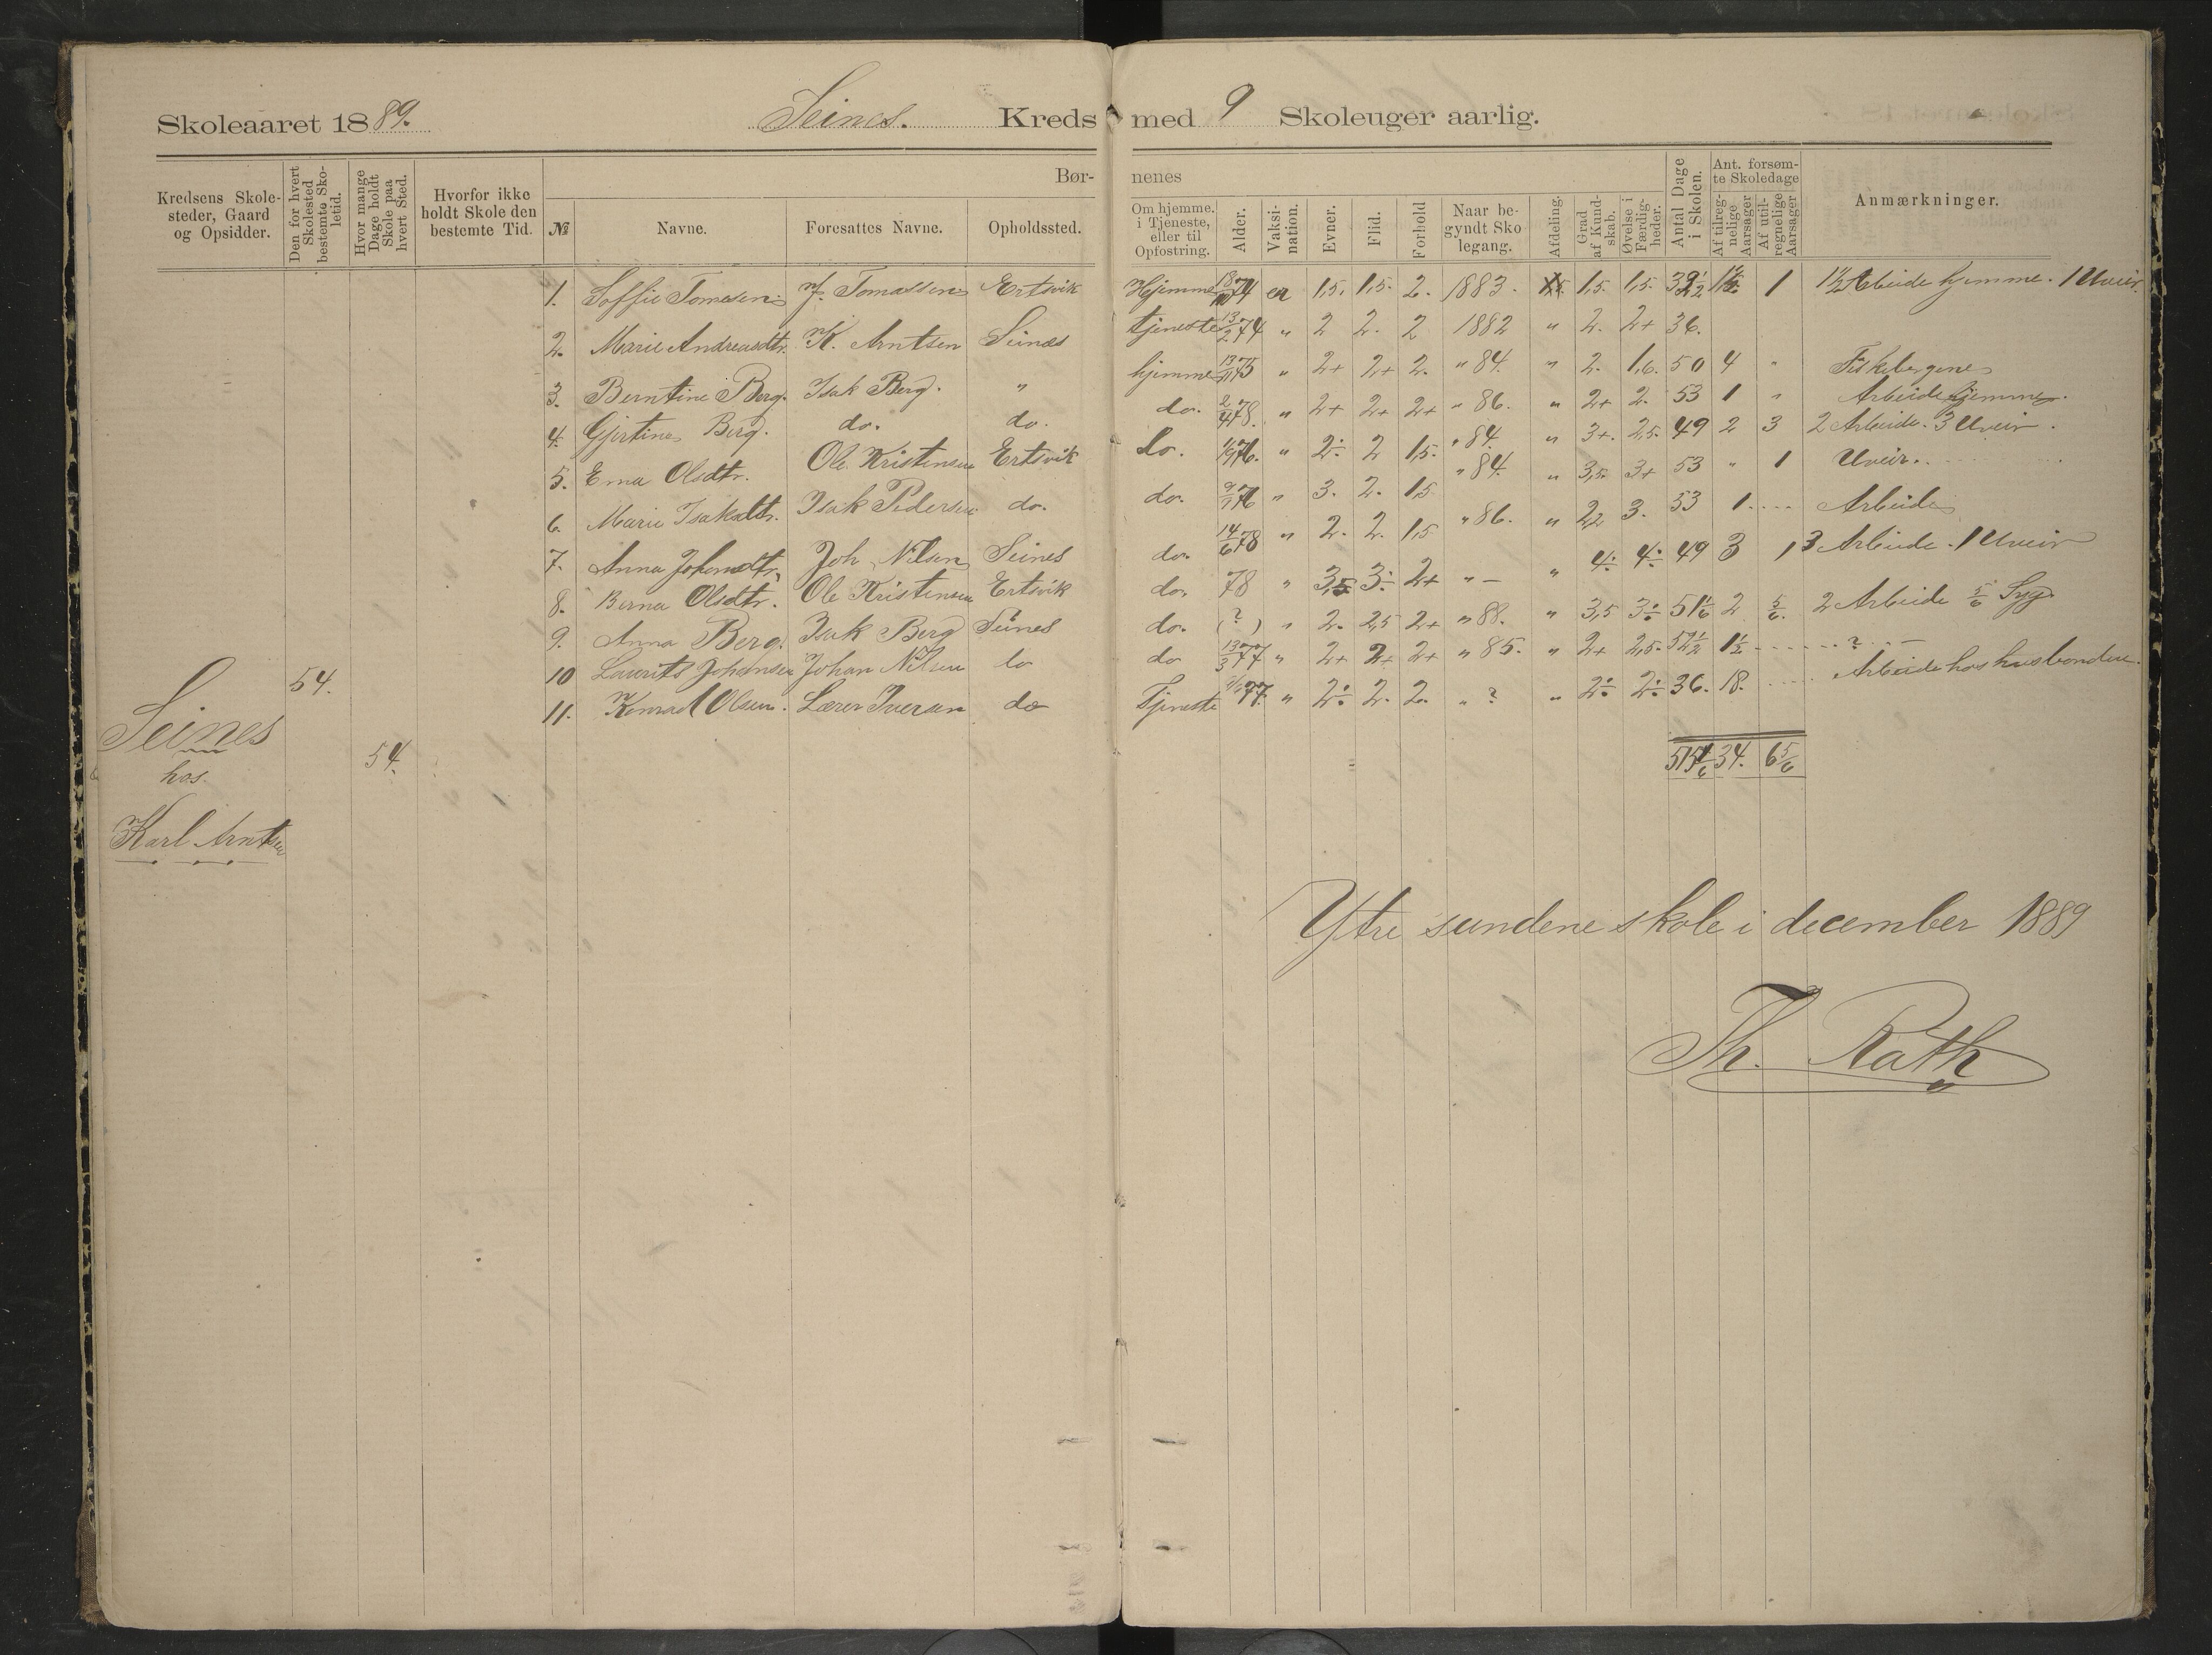 Skoleaaret 1889. Seines. Kreds med 9 Skoleuger aarlig.
Kredsens Skolesteder, Gaard og Opsidder. Den for hvert Skolested bestemte Skoletid. Hvor mange Dage holdt Skole paa hvert Sted. Hvorfor ikke holdt Skole den bestemte Tid. Børnenes
№ Navne. Foresattes Navne. Opholdssted. Om hjemme, i Tjeneste, eller til Opfostring. Alder. Vaksination. Evner. Flid. Forhold Naar begyndt Skolegang. Afdeling. Grad af Kundskab. Øvelse i Færdigheder. Antal Dage i Skolen. Ant. forsømte Skoledage Af tilregnelige Aarsager Af utilregnelige Aarsager Anmærkninger.
1. Soffie Tomesen. J. Tomassen Ertsvik Hjemme 74 er 1,5. 1,5. 2. 1883. 1,5. 1,5. 1 1½ Arbeide hjemme. 1 Uveir.
2. Marie Andreasdtr. K. Arntsen Seines tjeneste 13/2 74 " 2 2. 2 1882 " 2. 2+ 36.
3. Berntine Berg. Isak Berg. " hjemme 75 " 2+ 2+ 2. " 84. " 2. 1.6. 50 4 " Fiskebergene
4. Gjertine Berg. do. do. do. 2/4 78. " 2+ 2+ 2+ " 86. " 2+ 2. 53 1 " Arbeide hjemme.
5. Erna Olsdtr. Ole Kristensen Ertsvik do. 76. " 2÷ 2 1,5. " 84. " 3+. 2,5. 49 2 3 2 Arbeide. 3 Uveir.
6. Marie Isaksdtr. Isak Pedersen do. do. 76 " 3. 2. 1,5 " 84. " 3,5 3+ 53 " 1 Uveir.
7. Anna Johansdtr. Joh. Nilsen Seines do. 14/6 78 " 2. 2. 1,5 " 86. " 2,2 3. 53 1. Arbeide
8. Berna Olsdtr. Ole Kristensen Ertsvik do. 78 " 3,5 3÷ 2+ " — " 4÷ 4÷ 49 3 1 3 Arbeide. 1 Uveir
9. Anna Berg. Isak Berg Seines do. (?) " 2. 2,5 2+ " 88. " 3,5 3÷ 51 1/6 2 5/6. 2 Arbeide 5/6 Syg.
10 Laurits Johansen Johan Nilsen do do 13/3 77 " 2+ 2+ 2+ " 85. " 2+ 2,5. 52½ 1½ ? —
11. Konrad Olsen. Lærer Iversen do Tjeneste 77. " 2÷ 2. 2. " ? " 2÷ 2÷ 36. 18. Arbeide hos husbonden.
54.
Seines
54.
34. 6 5/6
hos.
Karl Arntsen
Ytre sundene skole i december 1889
Th. Rath